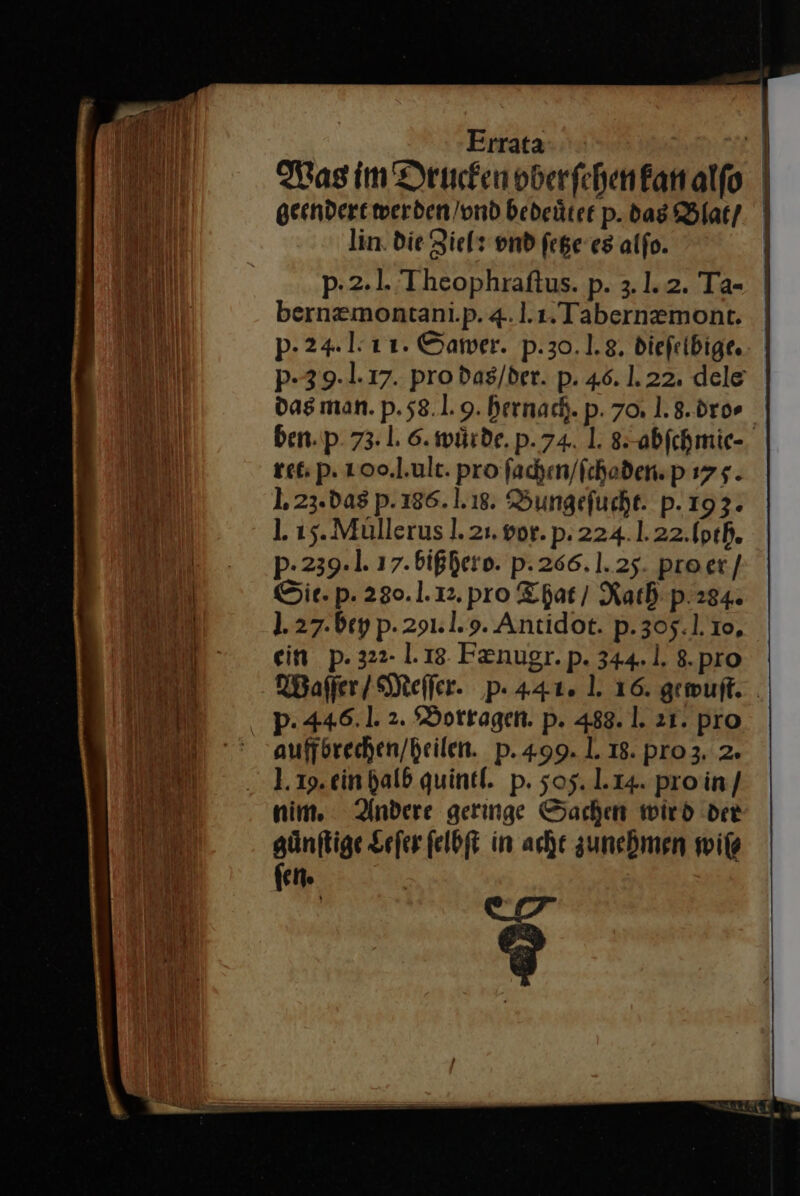 Errata
Was im Drucken vberſehen kan alſo
geendert werden/vnd bedeütet p. das Blat/
lin. die Ziel: vnd ſetze es alſo.
p.2.l. Theophraſtus. p. 3. l. 2. Ta-
bernæmontani.p. 4. l. 1. Tabernæmont.
p. 24. l. 11. Sawer. p.30. l. 8. dieſelbige.
p.39. l. 17. pro das/der. p. 46. l. 22. dele
das man. p.58. l. 9. hernach. p. 70. l. 8. dro-
ben. p. 73. l. 6. würde. p. 74. l. 8. abſchmie-
ret. p. 100.l.ult. pro ſachen/ſchaden. p 175.
l. 23. das p. 186. l. 18. Bungeſucht. p. 193.
l. 15. Müllerus l. 21. vor. p. 224. l. 22. loth.
p. 239. l. 17. bißhero. p. 266. l. 25. pro er/
Sie. p. 280. l. 12. pro That/ Rath p. 284.
l. 27. bey p. 291. l. 9. Antidot. p. 305. l. 10.
ein p. 322. l. 18 Fænugr. p. 344. l. 8. pro
Waſſer/ Meſſer. p. 441. l. 16. gewuſt.
p. 446. l. 2. Vortragen. p. 488. l. 21. pro
auffbrechen/heilen. p. 499. l. 18. pro 3. 2.
l. 19. ein halb quintl. p. 505. l. 14. pro in/
nim. Andere geringe Sachen wird der
günſtige Leſer ſelbſt in acht zunehmen wiſ-
ſen.